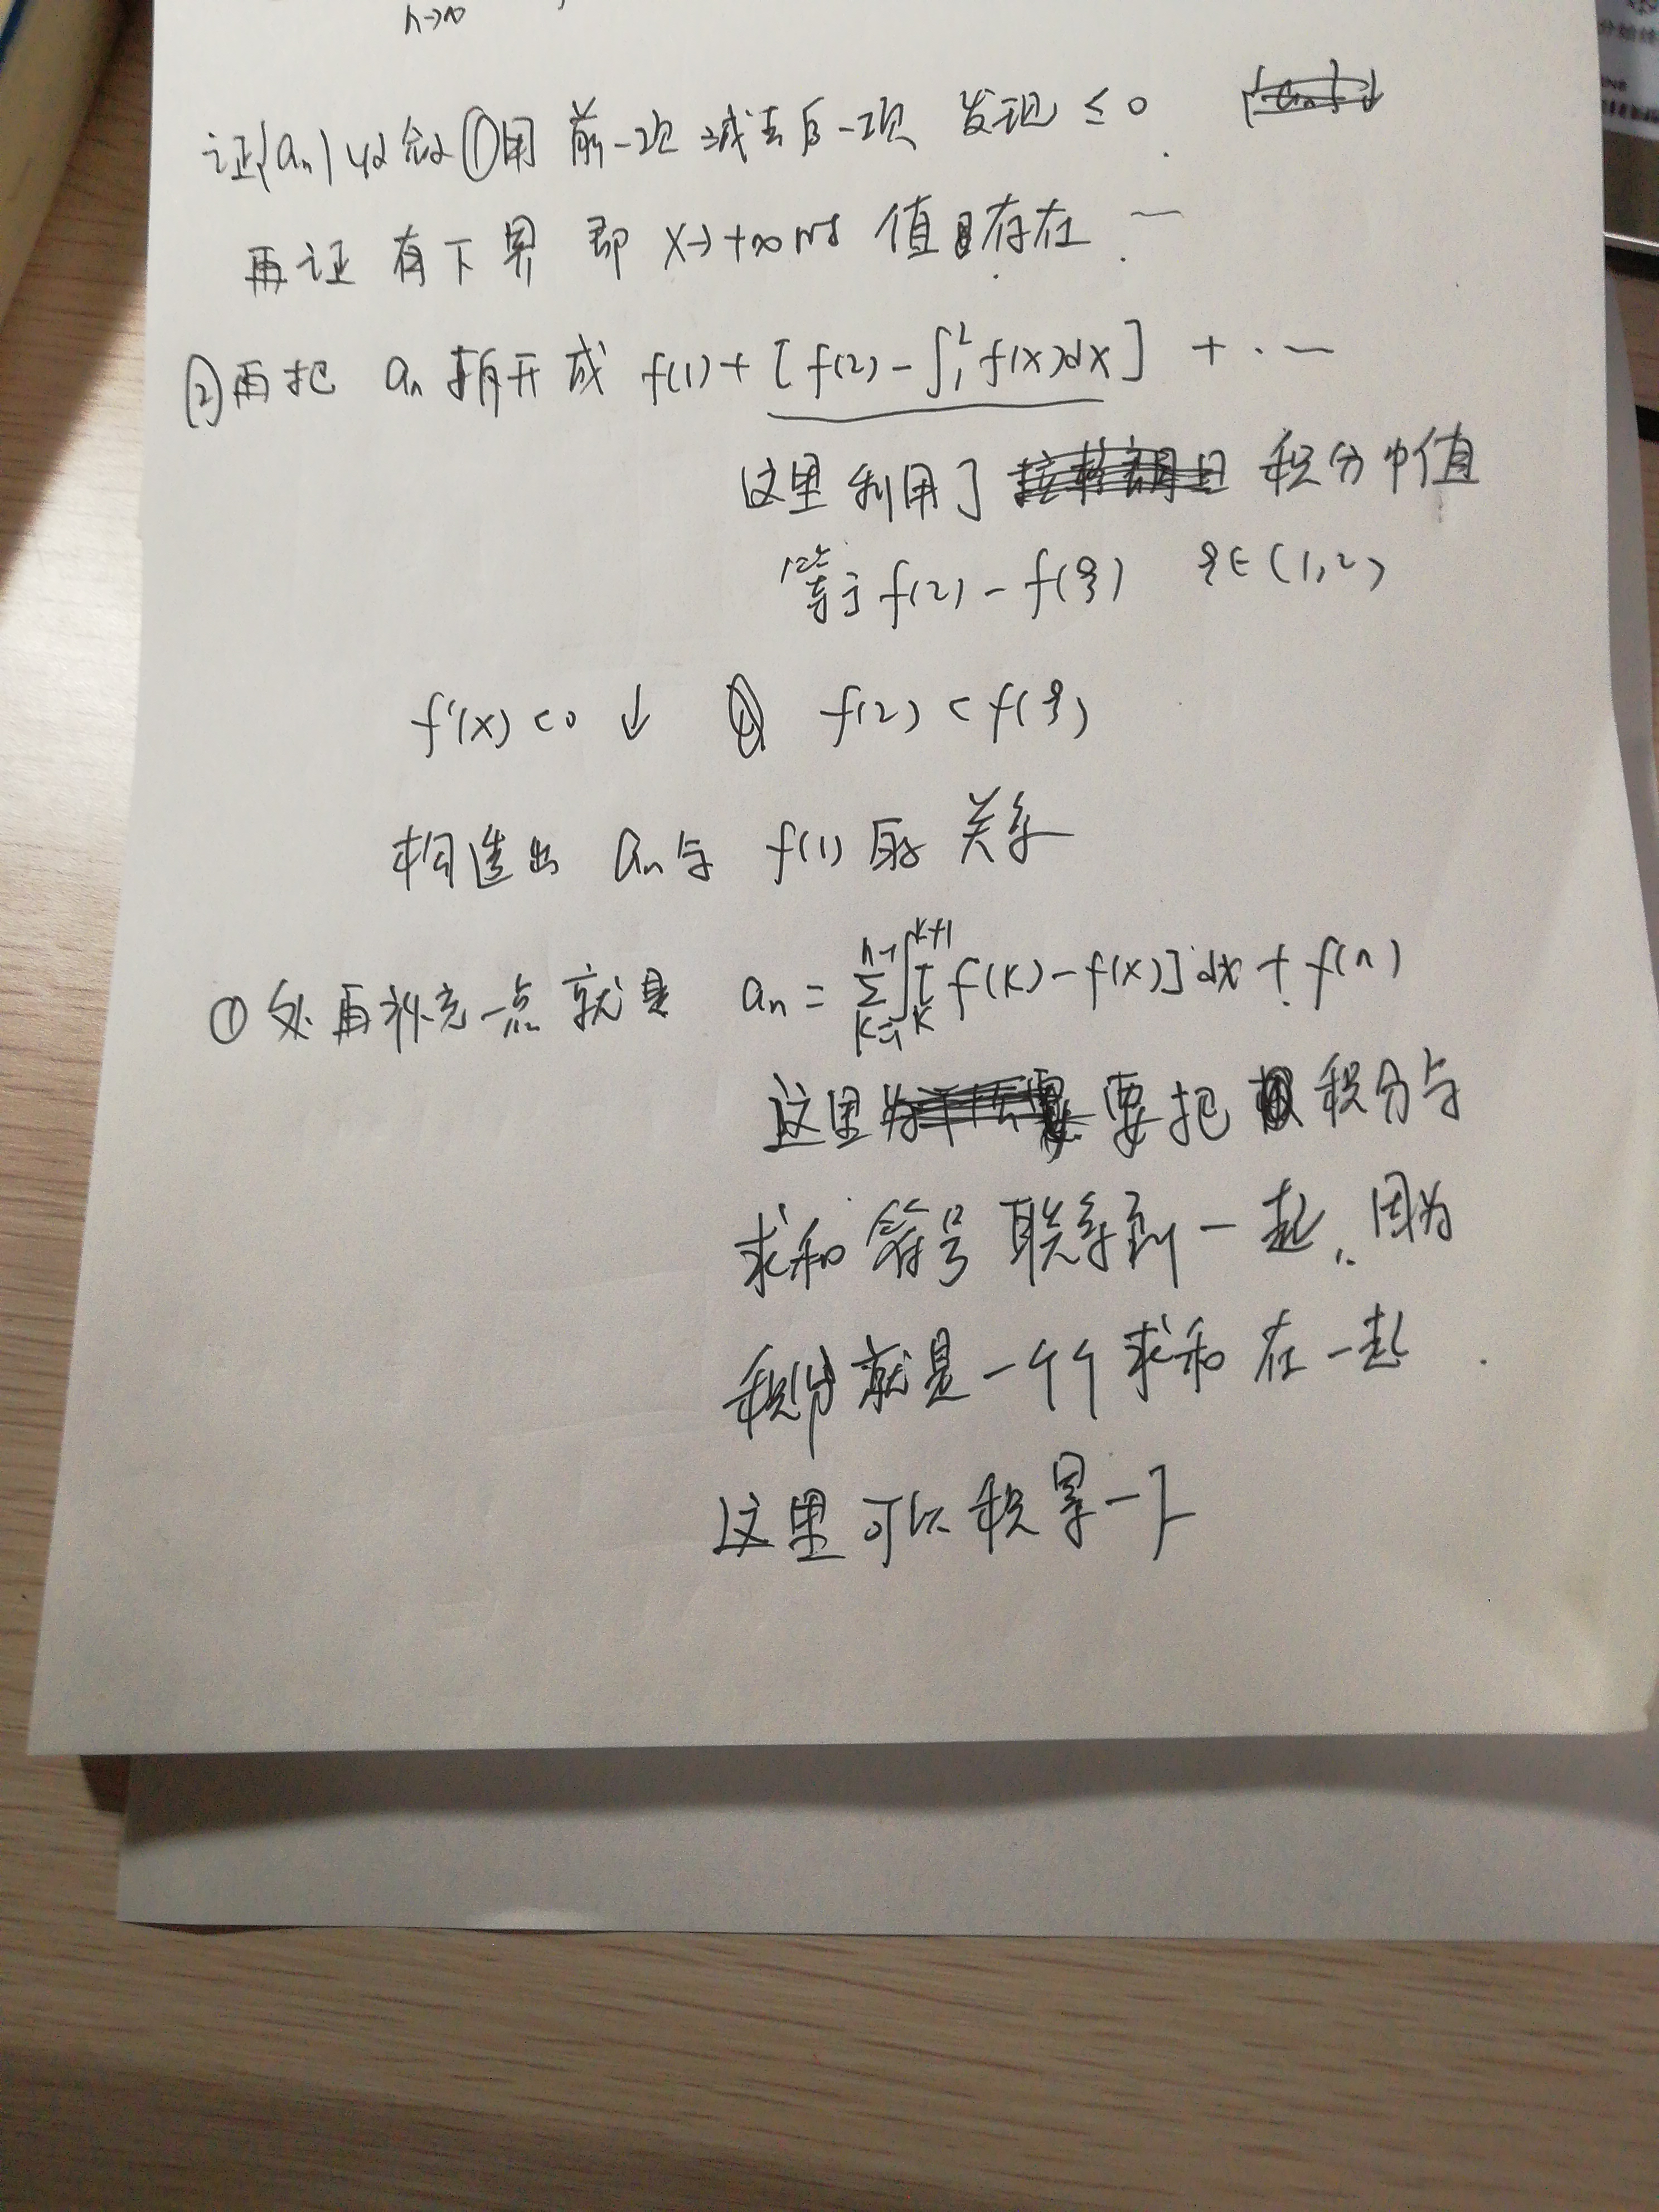 n→∞
证{aₙ}收敛 ①用 前一项 减去后一项 发现 ≤ 0
再证 有下界 即 x→+∞时 值存在 …
②再把 aₙ 拆开成 f(1) + [f(2) - ∫₁² f(x)dx] + …
这里利用了 积分中值
等于 f(2) - f(ξ) ξ∈(1,2)
f'(x)<0 ↓ f(2) < f(ξ)
构造出 aₙ与 f(1) 的 关系
①处再补充一点 就是 aₙ = ∑ₖ₌₁ⁿ⁻¹ ∫ₖᵏ⁺¹ [f(k) - f(x)] dx + f(n)
这里 要把 积分与
求和 符号 联系到一起, 因为
积分就是一个个求和 在一起
这里 可以 积累一下